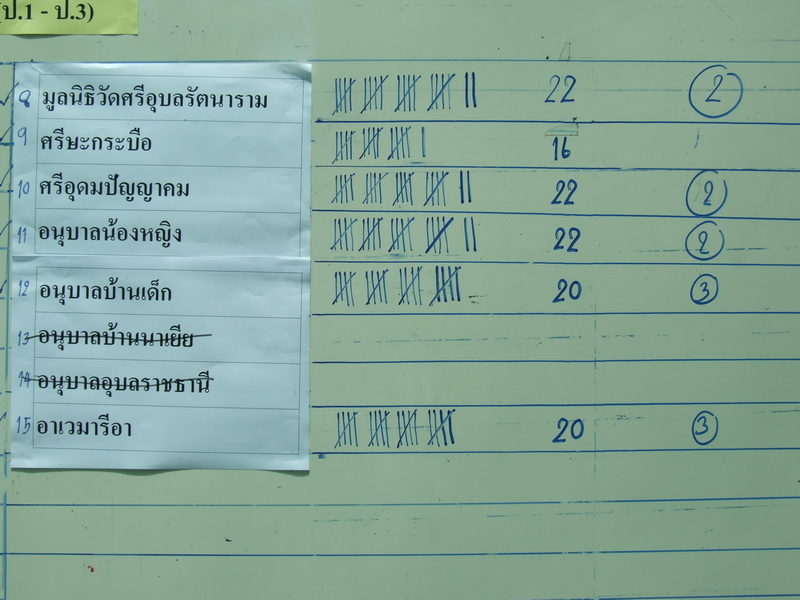 (ป.1 - ป.3)
8 มูลนิธิวัดศรีอุบลรัตนาราม 22 2
9 ศรีษะกระบือ 16
10 ศรีอุดมปัญญาคม 22 2
11 อนุบาลน้องหญิง 22 2
12 อนุบาลบ้านเด็ก 20 3
13 อนุบาลบ้านนาเยีย
14 อนุบาลอุบลราชธานี
15 อาเวมารีอา 20 3